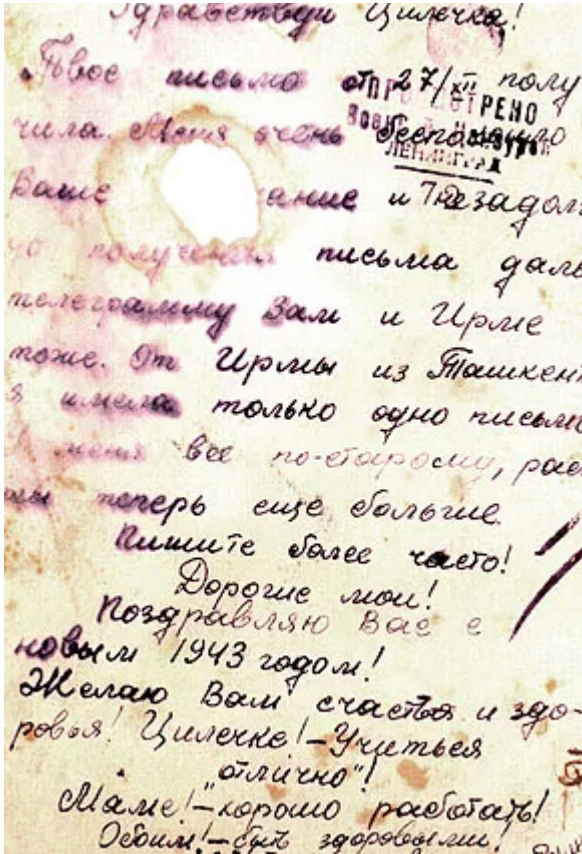 Здравствуй Цилечка!
Твое письмо от 27/XII полу
чила. Меня очень беспокоило
ПРОСМОТРЕНО
ЛЕНИНГРАД
Ваше ание и я незадол
го получения письма дала
телеграмму Вам и Ирме
тоже. От Ирмы из Ташкент
я имела только одно письмо
У меня все по-старому, рас
мы теперь еще больше.
Пишите более часто!
Дорогие мои!
Поздравляю Вас с
новым 1943 годом!
Желаю Вам счастья и здо-
ровья! Цилечке! - Учиться
"отлично"!
Маме! - хорошо работать!
Обоим! - быть здоровыми!